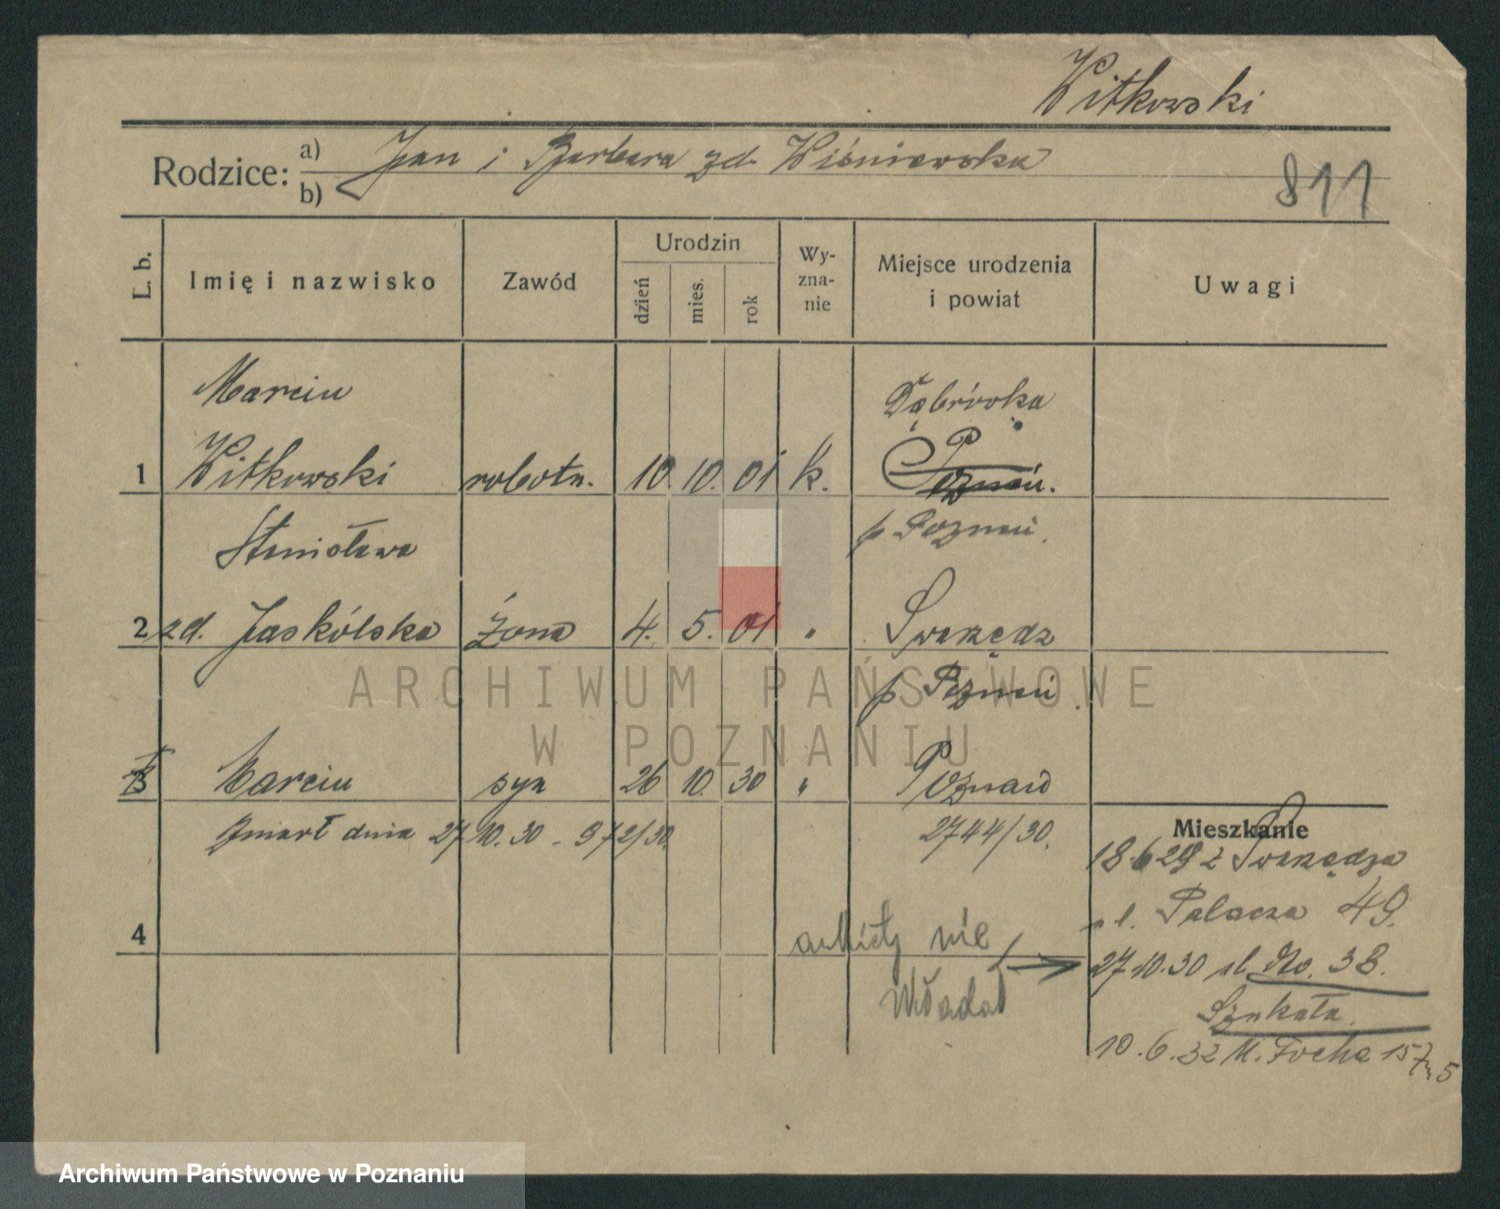 Witkowski
Rodzice: a) Jan i Barbara zd. Wiśniewska
b)
811
L. b.
Imię i nazwisko
Zawód
Urodzin
dzień
mies.
rok
Wy-
zna-
nie
Miejsce urodzenia
i powiat
Uwagi
Marcin
Dąbrówka
1 Witkowski robotn. 10. 10. 01 k. Poznań.
Stanisława
p Poznań.
2 zd. Jaskólska żona 4. 5. 01 " Swarzędz
p Poznań
3 Marcin syn 26 10. 30 " Poznań
zmarł dnia 27.10.30 - 972/30.
2744/30.
4
Mieszkanie
18.6 29 z Swarzędza
ul. Palacza 49.
27.10.30 ul. No. 38.
Szukała
10.6.32 M. Focha 157 m 5
ankiety nie
wkładał
ARCHIWUM PAŃSTWOWE
W POZNANIU
Archiwum Państwowe w Poznaniu